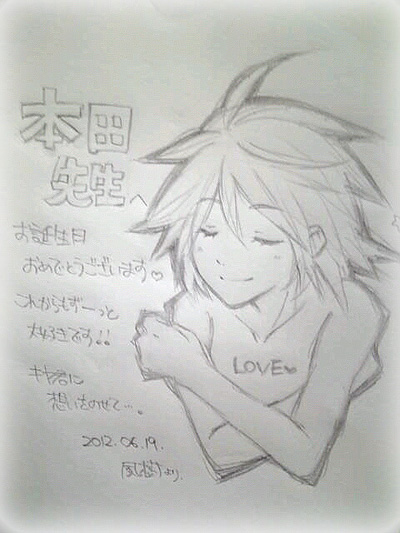 本田
先生へ
お誕生日
おめでとうございます♡
これからもずーっと
大好きです!!
キヤ君に
想いをのせて…。
LOVE♥
2012.06.19.
より